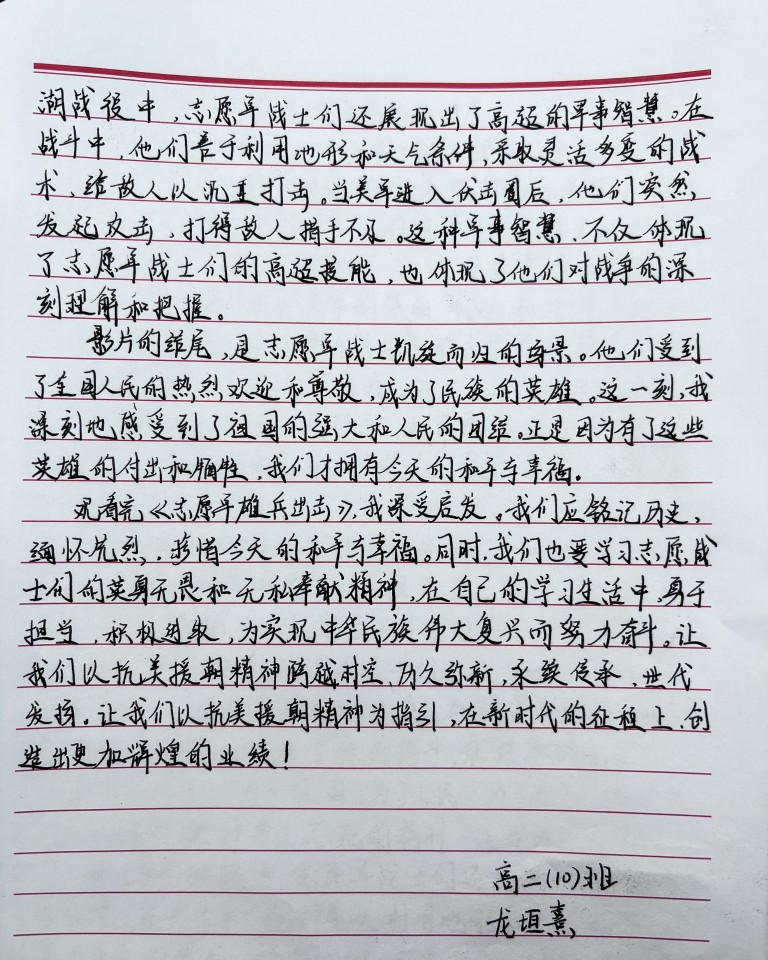 湖战役中，志愿军战士们还展现出了高超的军事智慧。在
战斗中，他们善于利用地形和天气条件，采取灵活多变的战
术，给敌人以沉重打击。当美军进入伏击圈后，他们突然
发起攻击，打得敌人措手不及。这种军事智慧，不仅体现
了志愿军战士们的高超技能，也体现了他们对战争的深
刻理解和把握。
影片的结尾，是志愿军战士凯旋而归的场景。他们受到
了全国人民的热烈欢迎和尊敬，成为了民族的英雄。这一刻，我
深刻地感受到了祖国的强大和人民的团结。正是因为有了这些
英雄的付出和牺牲，我们才拥有今天的和平与幸福。
观看完《志愿军雄兵出击》，我深受启发。我们应铭记历史，
缅怀先烈，珍惜今天的和平与幸福。同时，我们也要学习志愿战
士们的英勇无畏和无私奉献精神，在自己的学习生活中，勇于
担当，积极进取，为实现中华民族伟大复兴而努力奋斗。让
我们以抗美援朝精神跨越时空、历久弥新，永续传承，世代
发扬。让我们以抗美援朝精神为指引，在新时代的征程上，创
造出更加辉煌的业绩！
高二(10)班
龙垣熹